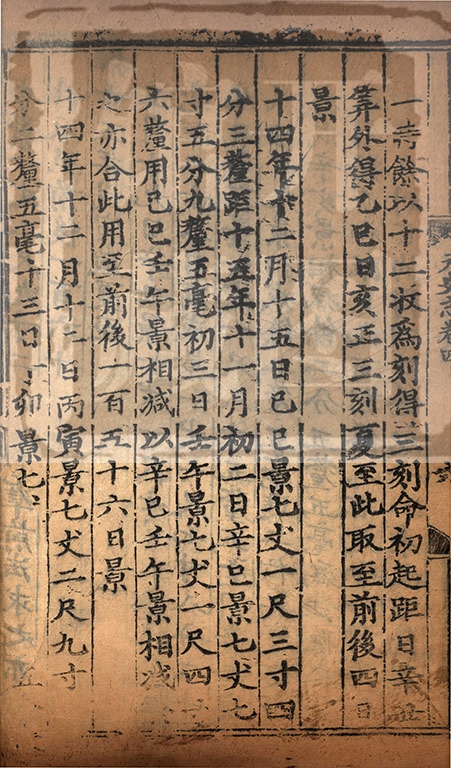 一時餘以十二收爲刻得三刻命初起距日辛丑
筭外得乙巳日亥正三刻夏至此取至前後四日
景
十四年十二月十五日己巳景七丈一尺三寸四
分三釐距十五年十一月初二日辛巳景七丈七
寸五分九釐五毫初三日壬午景七丈一尺四寸
六釐用己巳壬午景相減以辛巳壬午景相減
之亦合此用至前後一百五十六日景
十四年十二月十二日丙寅景七丈二尺九寸
分二釐五毫十三日丁卯景七
元史志卷四